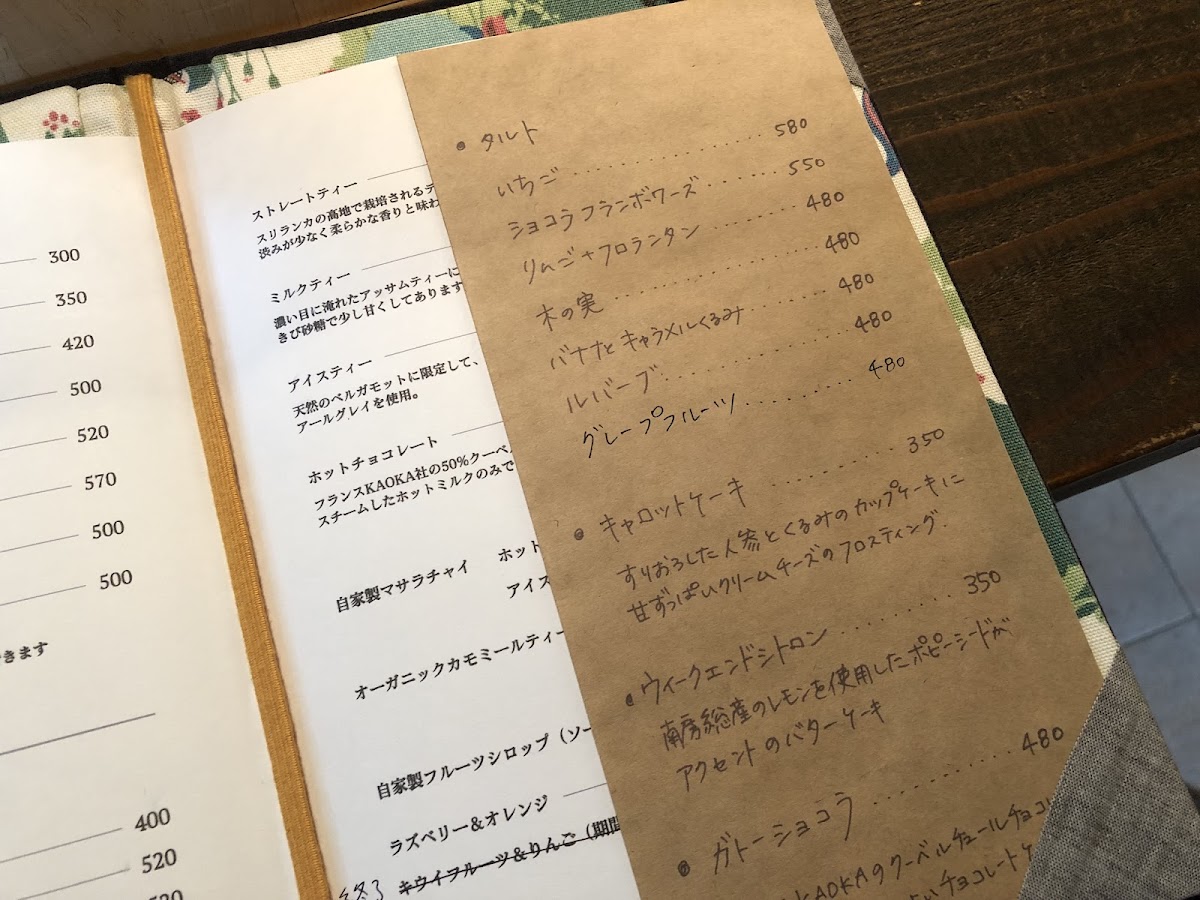 300
350
420
500
520
570
500
500
きます
400
520
ストレートティー
スリランカの高地で栽培されるデ
渋みが少なく柔らかな香りと味わ
ミルクティー
濃い目に淹れたアッサムティーに
きび砂糖で少し甘くしてあります
アイスティー
天然のベルガモットに限定して、
アールグレイを使用。
ホットチョコレート
フランスKAOKA社の50%クーベ
スチームしたホットミルクのみで
自家製マサラチャイ ホット
アイス
オーガニックカモミールティー
自家製フルーツシロップ(ソー
ラズベリー&オレンジ
キウイフルーツ&りんご(期間
終了
• タルト
いちご 580
ショコラフランボワーズ 550
りんご+フロランタン 480
木の実 480
バナナとキャラメルくるみ 480
ルバーブ 480
グレープフルーツ 480
• キャロットケーキ 350
すりおろした人参とくるみのカップケーキに
甘ずっぱいクリームチーズのフロスティング.
• ウィークエンドシトロン 350
南房総産のレモンを使用したポピーシードが
アクセントのバターケーキ
• ガトーショコラ 480
KAOKAのクーベルチュールチョコ
チョコレートケ